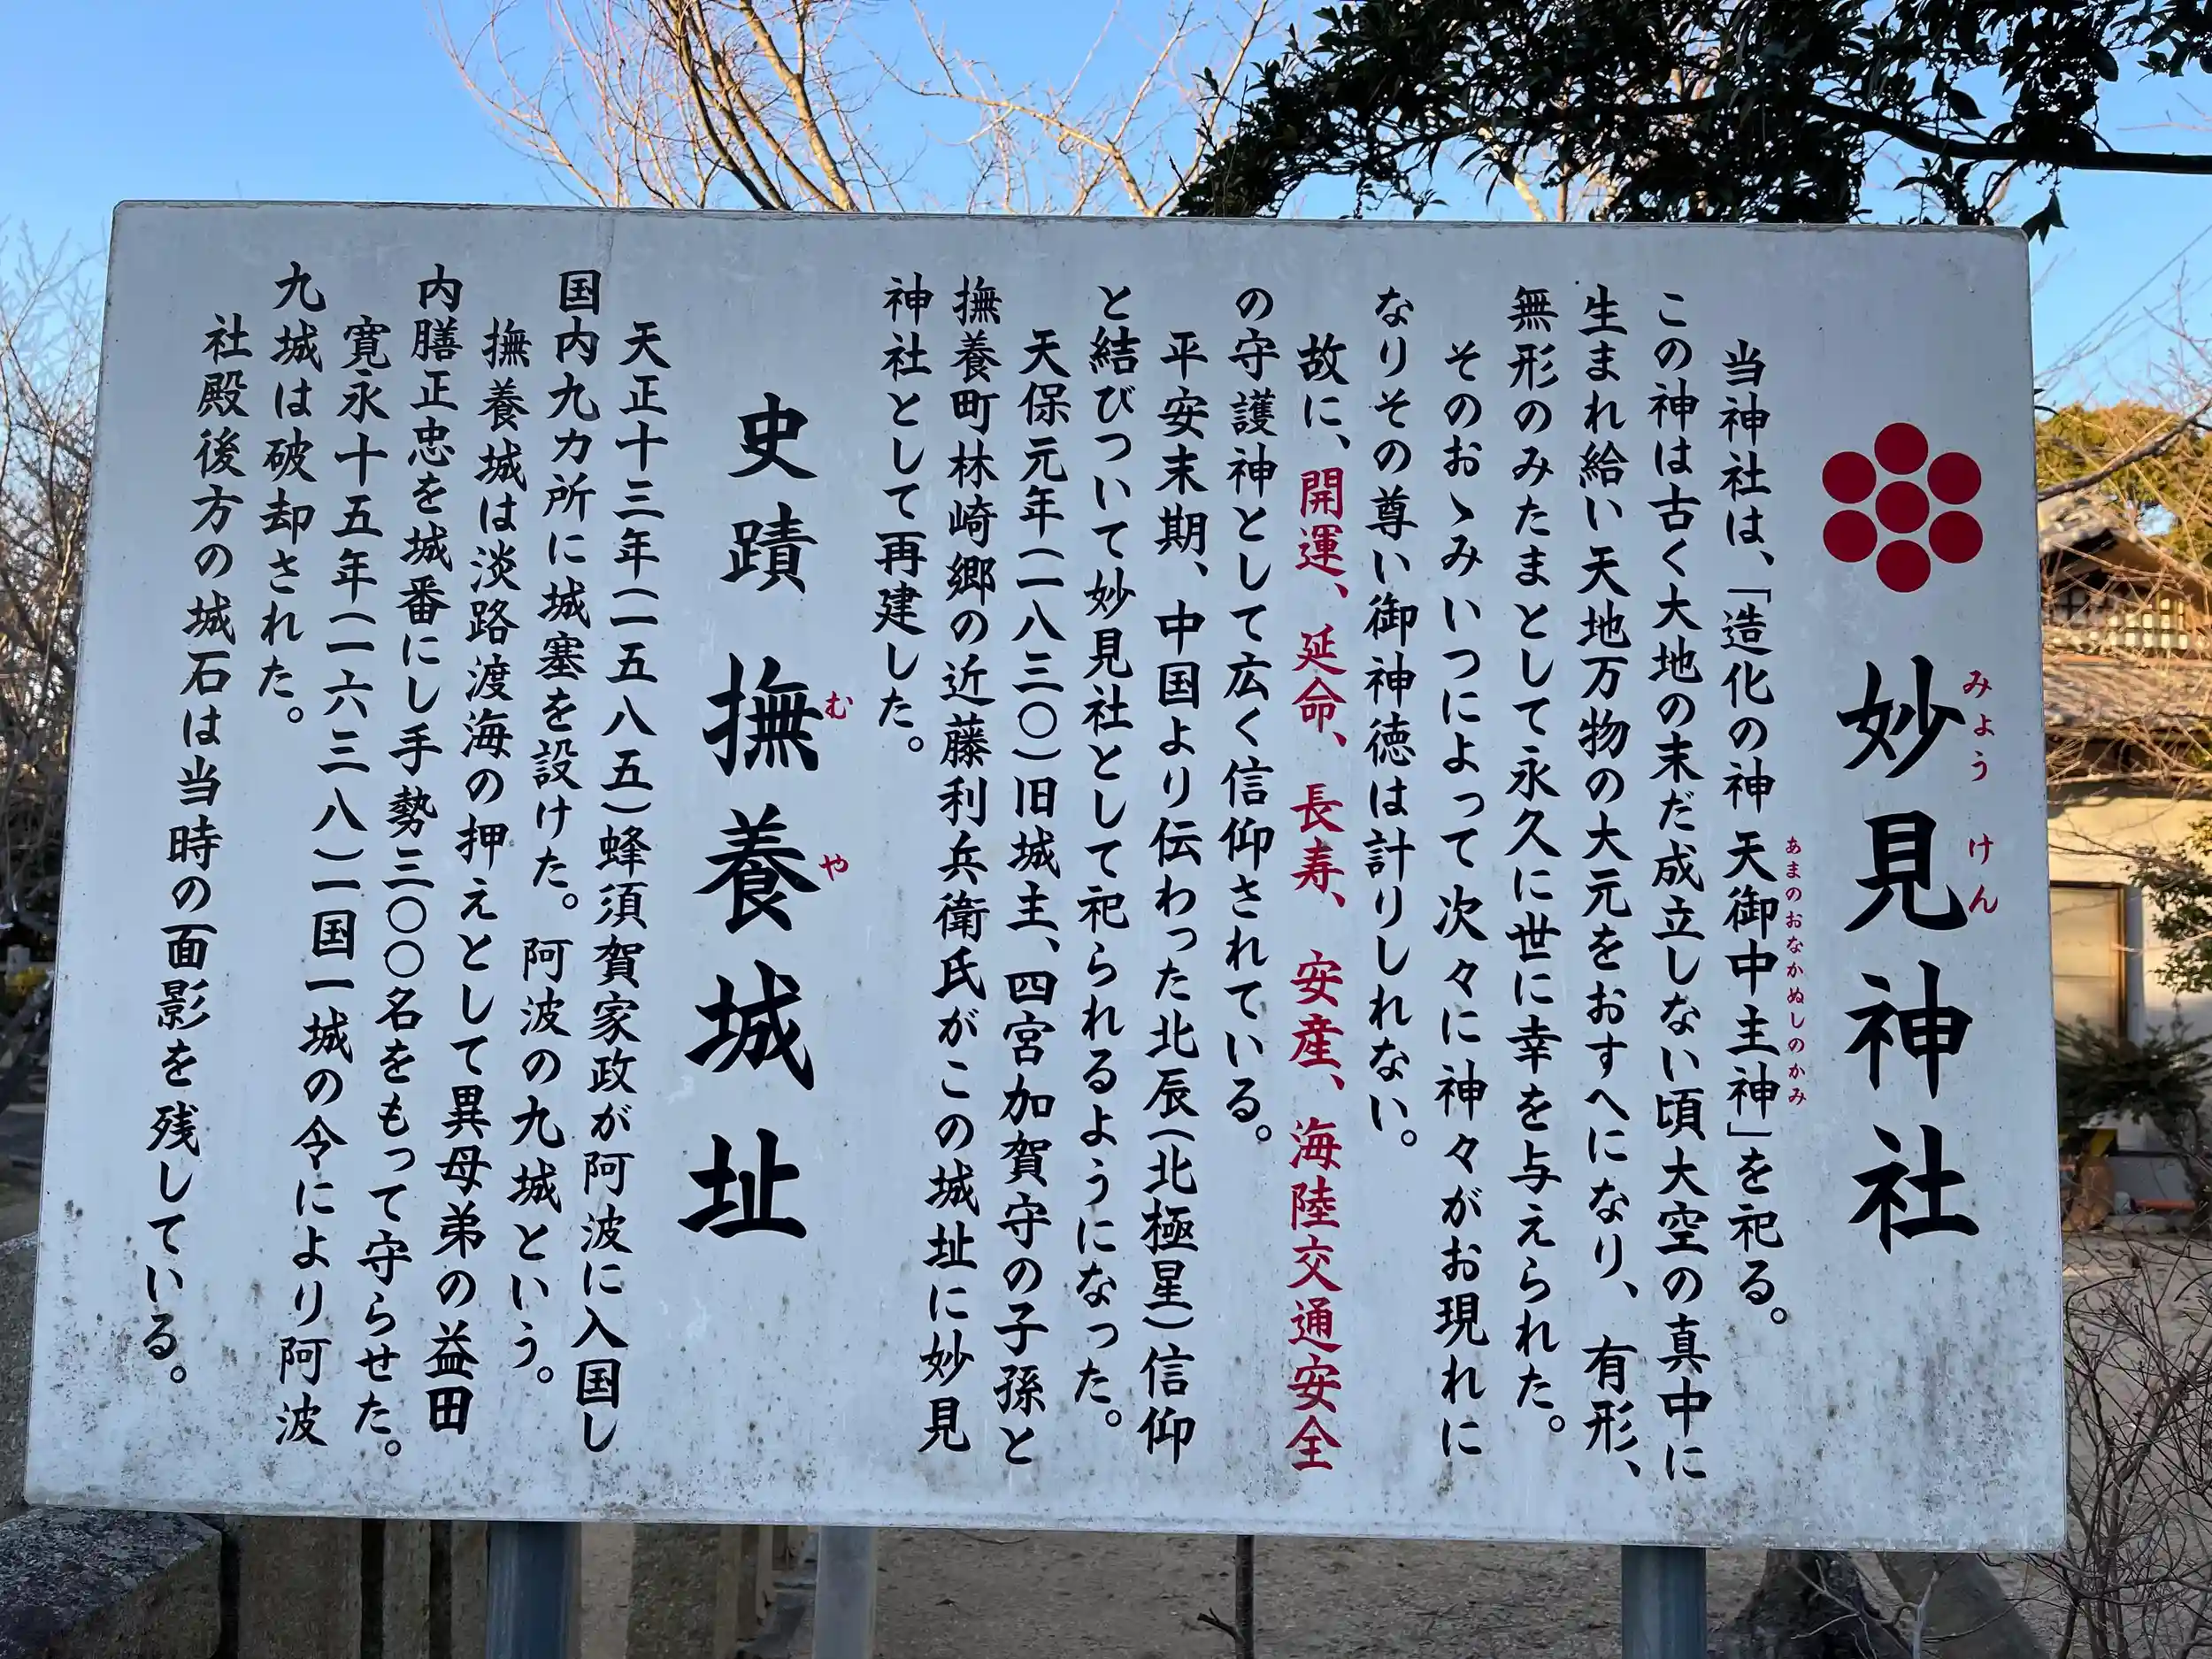 妙見神社
みょうけん
当神社は、「造化の神 天御中主神」を祀る。
あまのおなかぬしのかみ
この神は古く大地の末だ成立しない頃大空の真中に
生まれ給い天地万物の大元をおすへになり、有形、
無形のみたまとして永久に世に幸を与えられた。
そのおゝみいつによって次々に神々がお現れに
なりその尊い御神徳は計りしれない。
故に、開運、延命、長寿、安産、海陸交通安全
の守護神として広く信仰されている。
平安末期、中国より伝わった北辰(北極星)信仰
と結びついて妙見社として祀られるようになった。
天保元年(一八三〇)旧城主、四宮加賀守の子孫と
撫養町林崎郷の近藤利兵衛氏がこの城址に妙見
神社として再建した。
史蹟 撫養城址
むや
天正十三年(一五八五)蜂須賀家政が阿波に入国し
国内九カ所に城塞を設けた。阿波の九城という。
撫養城は淡路渡海の押えとして異母弟の益田
内膳正忠を城番にし手勢三〇〇名をもって守らせた。
寛永十五年(一六三八)一国一城の令により阿波
九城は破却された。
社殿後方の城石は当時の面影を残している。